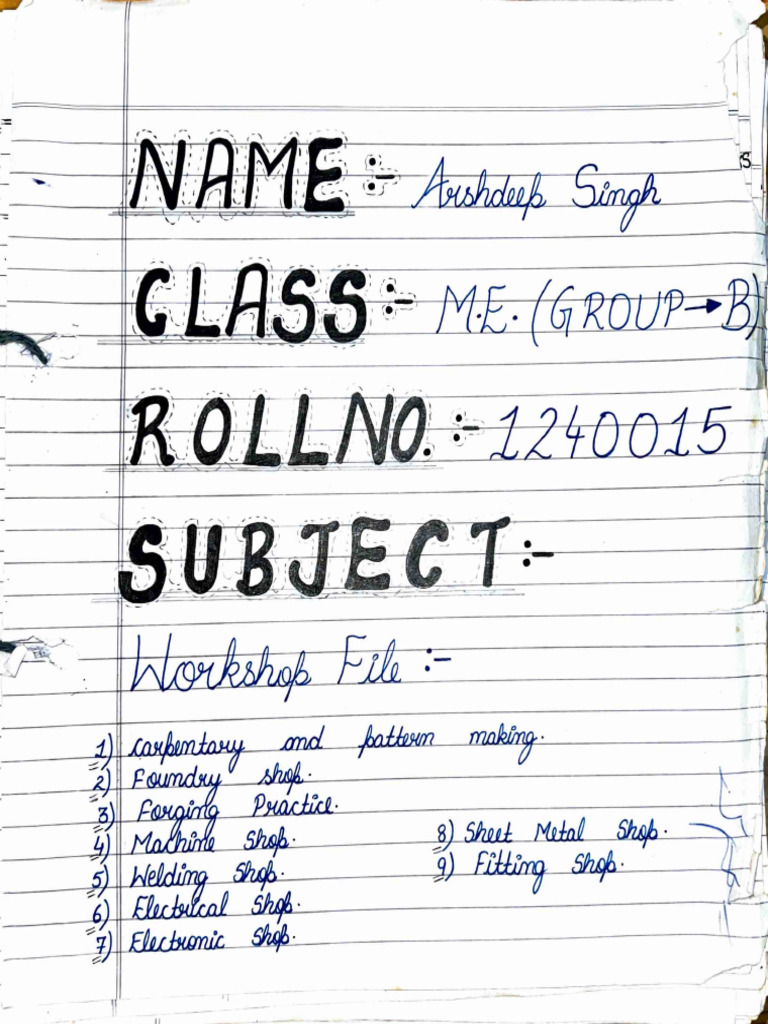 NAME :- Arshdeep Singh
CLASS :- M.E. (GROUP→B)
ROLLNO. :- 1240015
SUBJECT :-
Workshop File :-
1) carpentary and pattern making.
2) Foundry shop.
3) Forging Practice.
4) Machine Shop.
5) Welding Shop.
6) Electrical Shop.
7) Electronic Shop.
8) Sheet Metal Shop.
9) Fitting Shop.